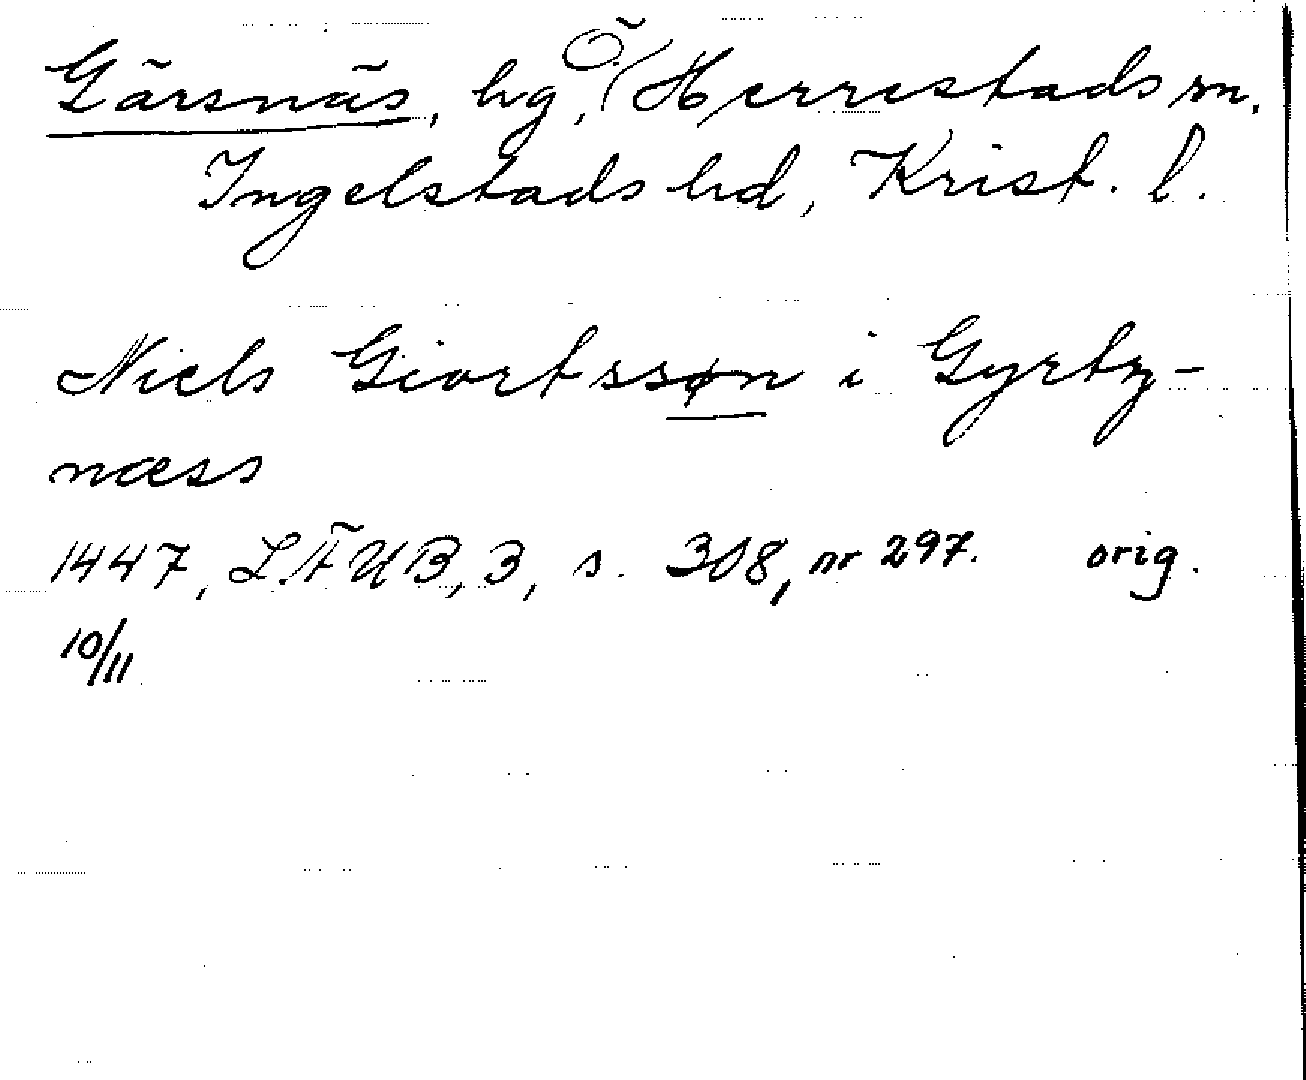 Gärsnäs, hg, Ö. Herrestads sn,
Ingelstads hd, Krist. l.
Niels Giortssøn i Gyrtz-
næss
1447, LÄUB, 3, s. 308, nr 297. orig.
10/11